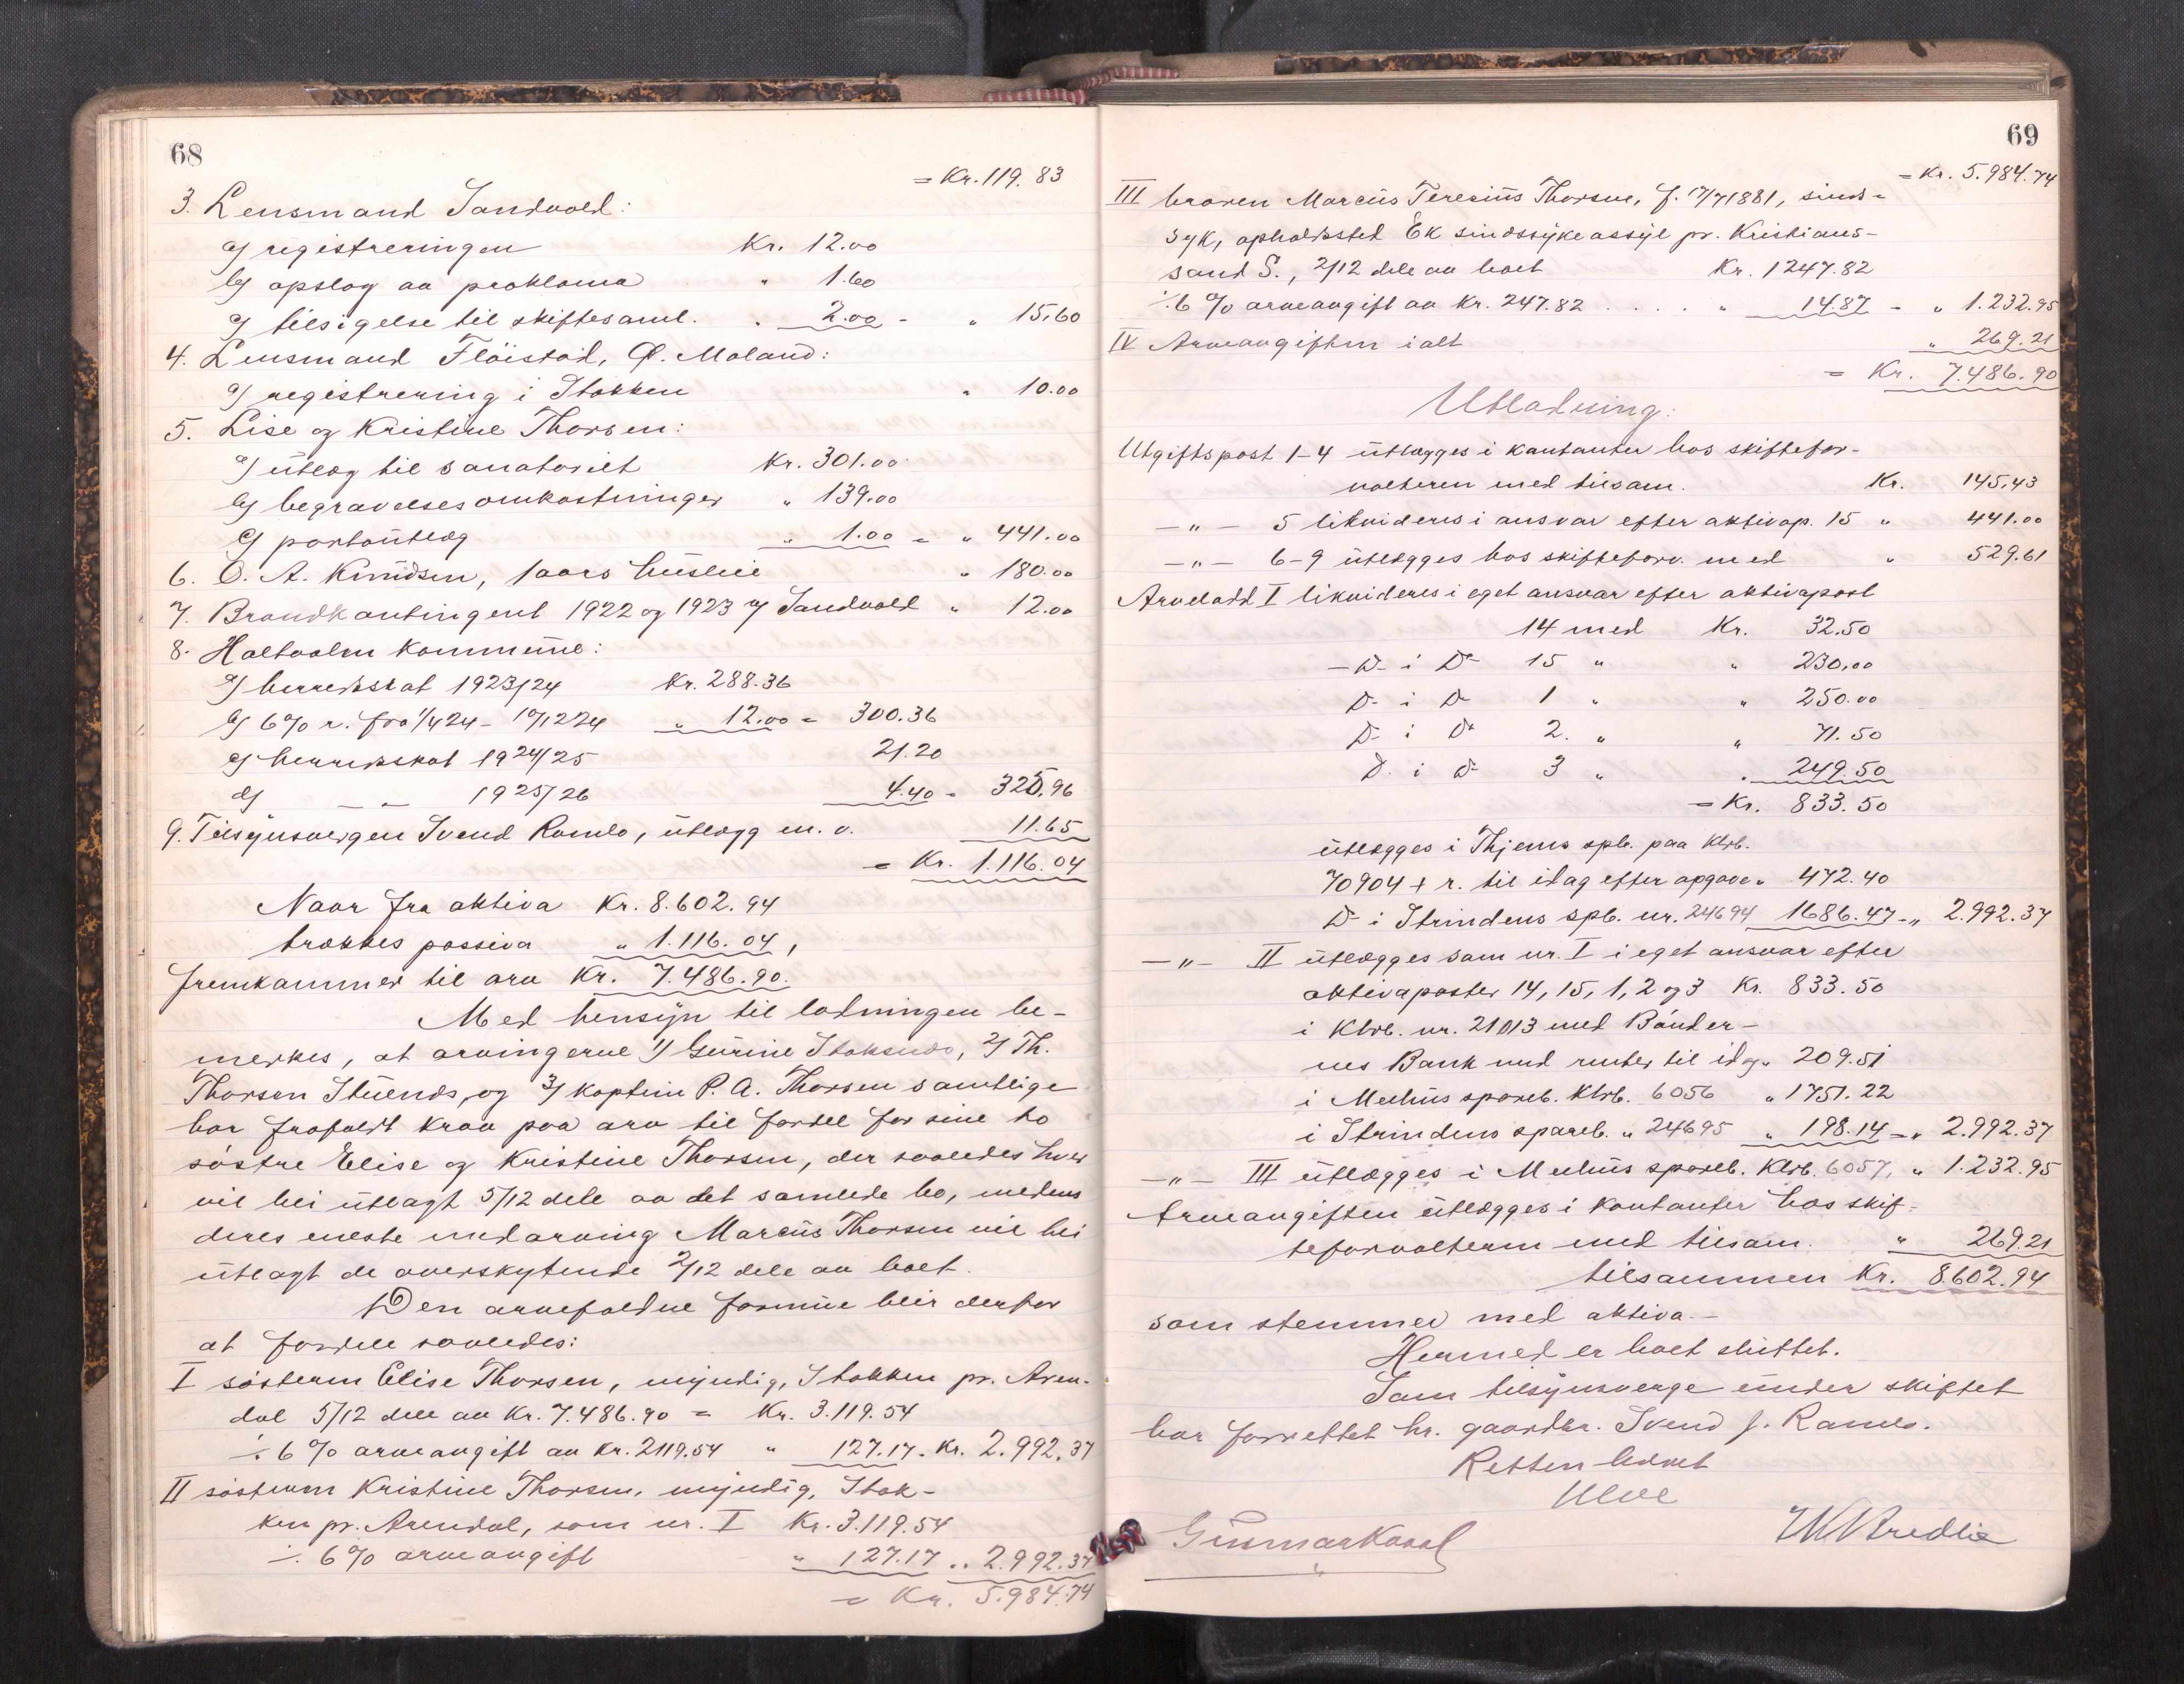 68
= Kr. 119.83
3. Lensmand Sandvold:
a) registreringen Kr. 12.00
b) opslag av proklama " 1.60
c) tilsigelse til skiftesaml. " 2.00 = " 15,60
4. Lensmand Flöistad, Ø. Moland:
a) registrering i Stokken " 10.00
5. Lise og Kristine Thorsen:
a) utlæg til sanatoriet Kr. 301.00
b) begravelsesomkostninger " 139.00
c) portoutlæg " 1.00 = " 441.00
6. O. A. Knudsen, 1 aars husleie " 180.00
7. Brandkontingent 1922 og 1923 v/ Sandvold " 12.00
8. Holtaalen kommune:
a) herredsskat 1923/24 Kr. 288.36
b) 6% r. fra 1/4 24 - 10/12 24 " 12.00 = 300.36
c) herredsskat 1924/25 21.20
d) — " — 1925/26 4.40 = 325.96
9. Tilsynsvergen Svend Ramlo, utlægg m. v. 11.65
= Kr. 1.116.04
Naar fra aktiva Kr. 8.602.94
trækkes passiva " 1.116.04,
fremkommer til arv Kr. 7.486.90.
Med hensyn til lodningen be-
merkes, at arvingerne 1) Gurine Stoksund, 2) Th.
Thorsen Stuends, og 3) kaptein P. A. Thorsen samtlige
har frafaldt krav paa arv til fordel for sine to
søstre Elise og Kristine Thorsen, der saaledes hver
vil bli utlagt 5/12 dele av det samlede bo, medens
deres eneste medarving Marcus Thorsen vil bli
utlagt de overskytende 2/12 dele av boet.
Den arvefaldne formue blir derfor
at fordele saaledes:
I søsteren Elise Thorsen, myndig, Stokken pr. Aren-
dal 5/12 dele av Kr. 7.486.90 = Kr. 3.119.54
÷ 6% arveavgift av Kr. 2119.54 " 127.17 = Kr. 2.992.37
II søsteren Kristine Thorsen, myndig, Stok-
ken pr. Arendal, som nr. I Kr. 3.119.54
÷ 6% arveavgift " 127.17 = " 2.992.37
= Kr. 5.984.74
69
= Kr. 5.984.74
III broren Marcus Teresius Thorsen, f. 17/7 1881, sinds-
syk, opholdssted Ek sindssykeasyl pr. Kristians-
sand S., 2/12 dele av boet Kr. 1247.82
÷ 6% arveavgift av Kr. 247.82 . . . . " 14.87 = " 1.232.95
IV Arveavgiften ialt " 269.21
= Kr. 7.486.90
Utlodning:
Utgiftspost 1-4 utlægges i kontanter hos skiftefor-
valteren med tilsam. Kr. 145,43
— " — 5 likvideres i ansvar efter aktivap. 15 " 441.00
— " — 6-9 utlægges hos skifteforv. med " 529.61
Arvelodd I likvideres i eget ansvar efter aktivapost
14 med Kr. 32.50
— D- i Do 15 " " 230.00
D- i Do 1 " " 250.00
D- i Do 2 " " 71.50
D- i Do 3 " " 249.50
= Kr. 833.50
utlægges i Thjems spb. paa Ktrb.
70904 + r. til idag efter opgave " 472.40
Do i Strindens spb. nr. 24694 1686.47 = " 2.992.37
— " — II utlægges som nr. I i eget ansvar efter
aktivaposter 14, 15, 1, 2 og 3 Kr. 833.50
i Ktrb. nr. 21013 med Bönder-
nes Bank med renter til idag " 209.51
i Melhus spareb. Ktrb. 6056 " 1751.22
i Strindens spareb. " 24695 " 198.14 = " 2.992.37
— " — III utlægges i Melhus spareb. Ktrb. 6057, " 1.232.95
Arveavgiften utlægges i kontanter hos skif-
teforvalteren med tilsam. " 269.21
tilsammen Kr. 8.602.94
som stemmer med aktiva.—
Hermed er boet sluttet.
Som tilsynsverge under skiftet
har forrettet hr. gaardbr. Svend J. Ramlo.
Retten hævet